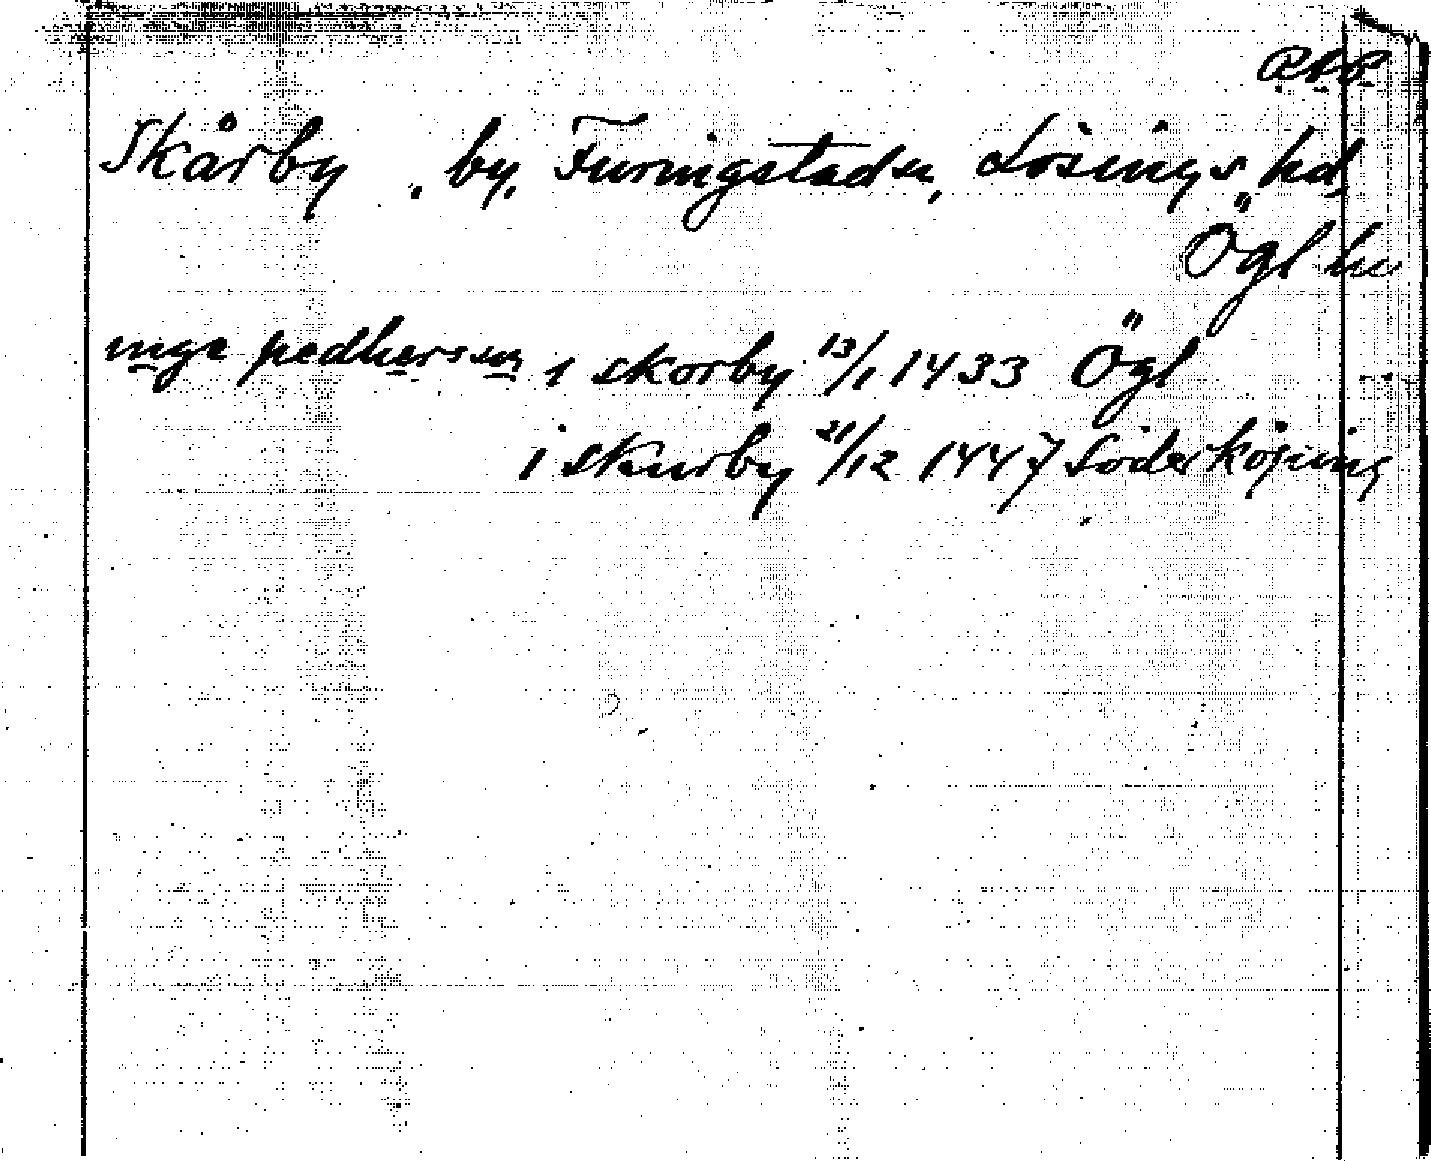 Skårby, by, Furingstads sn, Lösings hd
Ögl
inge pedhersen i skorby 13/1 1433 Ögl
i skurby 21/12 1447 Söderköping